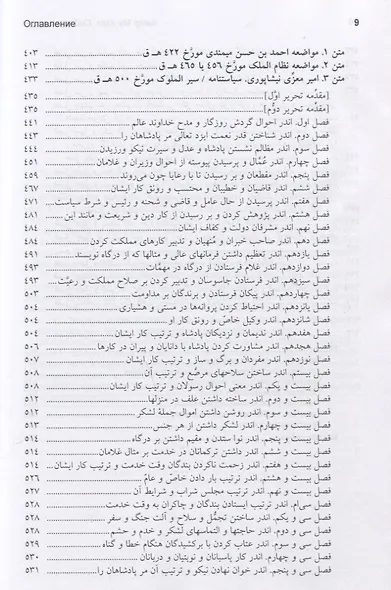 Оглавление 9
متن ١. مواضعه احمد بن حسن میمندی مورّخ ٤٢٢ هـ ق ... ٤٠٣
متن ٢. مواضعه نظام الملک مورّخ ٤٥٦ یا ٤٦٥ هـ ق ... ٤١٣
متن ٣. امیر معزّی نیشاپوری. سیاستنامه / سیر الملوک مورّخ ٥٠٠ هـ ق ... ٤٣٣
[مقدّمه تحریر اوّل] ... ٤٣٥
[مقدّمه تحریر دوّم] ... ٤٣٥
فصل اول. اندر احوال گردش روزگار و مدح خداوند عالم ... ٤٤١
فصل دوم. اندر شناختن قدر نعمت ایزد تعالی مر پادشاهان را ... ٤٤٣
فصل سوم. اندر مظالم نشستن پادشاه و عدل و سیرت نیکو ورزیدن ... ٤٤٤
فصل چهارم. اندر عُمّال و پرسیدن پیوسته از احوال وزیران و غلامان ... ٤٥١
فصل پنجم. اندر مقطعان و بر رسیدن تا با رعایا چون می‌روند ... ٤٥٩
فصل ششم. اندر قاضیان و خطیبان و محتسب و رونق کار ایشان ... ٤٦٧
فصل هفتم. اندر پرسیدن از حال عامل و قاضی و شحنه و رئیس و شرط سیاست ... ٤٧١
فصل هشتم. اندر پژوهش کردن و بر رسیدن از کار دین و شریعت و مانند این ... ٤٨١
فصل نهم. اندر مشرفان دولت و کفاف ایشان ... ٤٨٤
فصل دهم. اندر صاحب خبران و مُنهیان و تدبیر کارهای مملکت کردن ... ٤٨٤
فصل یازدهم. اندر تعظیم داشتن فرمانهای عالی و مثالها که از درگاه نویسند ... ٤٩١
فصل دوازدهم. اندر غلام فرستادن از درگاه در مهمّات ... ٤٩٣
فصل سیزدهم. اندر فرستادن جاسوسان و تدبیر کردن بر صلاح مملکت و رعیّت ... ٤٩٣
فصل چهاردهم. اندر پیکان فرستادن و برندگان بر مداومت ... ٥٠٣
فصل پانزدهم. اندر احتیاط کردن پروانه‌ها در مستی و هشیاری ... ٥٠٤
فصل شانزدهم. اندر وکیل خاصّ و رونق کار او ... ٥٠٤
فصل هفدهم. اندر ندیمان و نزدیکان پادشاه و ترتیب کار ایشان ... ٥٠٤
فصل هجدهم. اندر مشاورت کردن پادشاه با دانایان و پیران در کارها ... ٥٠٦
فصل نوزدهم. اندر مفردان و برگ و ساز و ترتیب کار ایشان ... ٥٠٧
فصل بیستم. اندر ساختن سلاحهای مرصّع و ترتیب آن ... ٥٠٨
فصل بیست و یکم. اندر معنی احوال رسولان و ترتیب کار ایشان ... ٥٠٨
فصل بیست و دوم. اندر ساخته داشتن علف در منزلها ... ٥١٢
فصل بیست و سوم. اندر روشن داشتن اموال جملۀ لشکر ... ٥١٢
فصل بیست و چهارم. اندر لشکر داشتن از هر جنس ... ٥١٣
فصل بیست و پنجم. اندر نوا ستدن و مقیم داشتن بر درگاه ... ٥١٤
فصل بیست و ششم. اندر داشتن ترکمانان در خدمت بر مثال غلامان ... ٥١٤
فصل بیست و هفتم. اندر زحمت ناکردن بندگان وقت خدمت و ترتیب کار ایشان ... ٥١٤
فصل بیست و هشتم. اندر ترتیب بار دادن خاصّ و عامّ ... ٥٢٦
فصل بیست و نهم. اندر ترتیب مجلس شراب و شرایط آن ... ٥٢٧
فصل سی‌ام. اندر ترتیب ایستادن بندگان و چاکران به وقت خدمت ... ٥٢٨
فصل سی و یکم. اندر ساختن تجمُّل و سلاح و آلت جنگ و سفر ... ٥٢٨
فصل سی و دوم. اندر حاجتها و التماسهای لشکر و خدم و حشم ... ٥٢٨
فصل سی و سوم. اندر عتاب کردن با برکشیدگان هنگام خطا و گناه ... ٥٢٩
فصل سی و چهارم. اندر کار پاسبانان و نوبتیان و دربانان ... ٥٣٠
فصل سی و پنجم. اندر خوان نهادن نیکو و ترتیب آن مر پادشاهان را ... ٥٣١